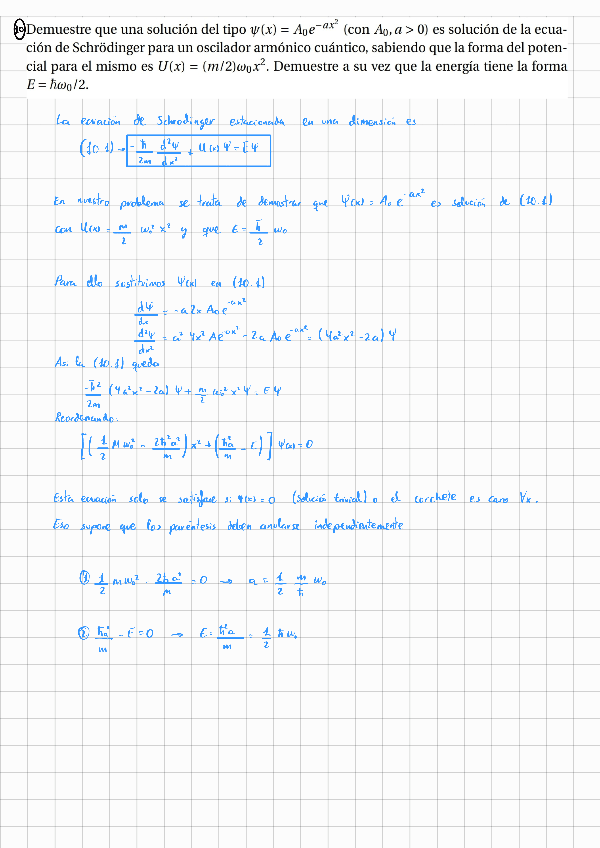 10 Demuestre que una solución del tipo ψ(x) = A₀e^{−ax²} (con A₀, a > 0) es solución de la ecua-
ción de Schrödinger para un oscilador armónico cuántico, sabiendo que la forma del poten-
cial para el mismo es U(x) = (m/2)ω₀x². Demuestre a su vez que la energía tiene la forma
E = ℏω₀/2.
La ecuación de Schrodinger estacionada en una dimensión es
(10.1) → -ℏ/2m d²Ψ/dx² + U(x) Ψ = E Ψ
En nuestro problema se trata de demostrar que Ψ(x) = A₀ e^{-ax²} es solución de (10.1)
con U(x) = m/2 ω₀² x² y que E = ℏ/2 ω₀
Para ello sustituimos Ψ(x) en (10.1)
dΨ/dx = -a2x A₀e^{-ax²}
d²Ψ/dx² = a² 4x² Ae^{-ax²} - 2a A₀e^{-ax²} = (4a²x² - 2a) Ψ
Asi la (10.1) queda
-ℏ²/2m (4a²x² - 2a) Ψ + m/2 ω₀² x² Ψ = E Ψ
Reordenando:
[(1/2 m ω₀² - 2ℏ²a²/m) x² + (ℏ²a/m - E)] Ψ(x) = 0
Esta ecuación solo se satisface si Ψ(x) = 0 (solución trivial) o el corchete es cero ∀x.
Eso supone que los paréntesis deben anularse independientemente
① 1/2 m ω₀² - 2ℏa²/m = 0 → a = 1/2 m/ℏ ω₀
② ℏa²/m - E = 0 → E = ℏ²a/m = 1/2 ℏ ω₀